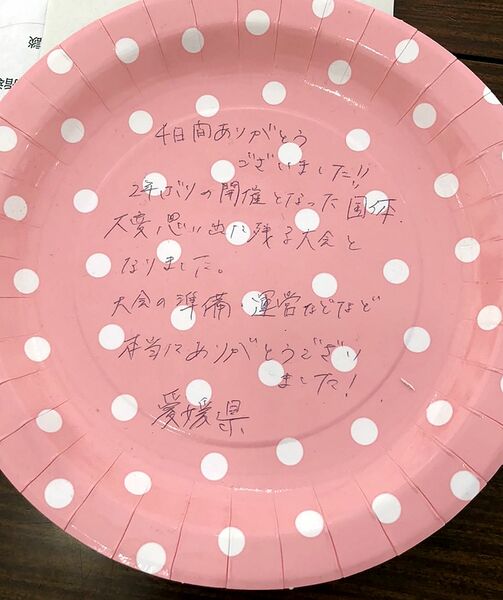 4日間ありがとう
ございました!!
2年ぶりの開催となった国体、
大変思い出に残る大会と
なりました。
大会の準備・運営などなど
本当にありがとうござい
ました!
愛媛県
談